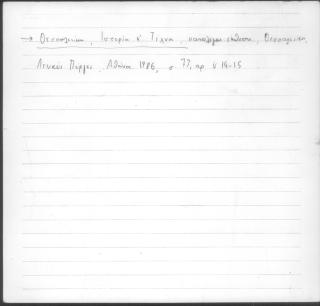 → Θεσσαλονίκη, Ιστορία κ' Τέχνη, κατάλογος έκθεσης, Θεσσαλονίκη,
Λευκός Πύργος, Αθήνα 1986, σ 77, αρ. 14-15